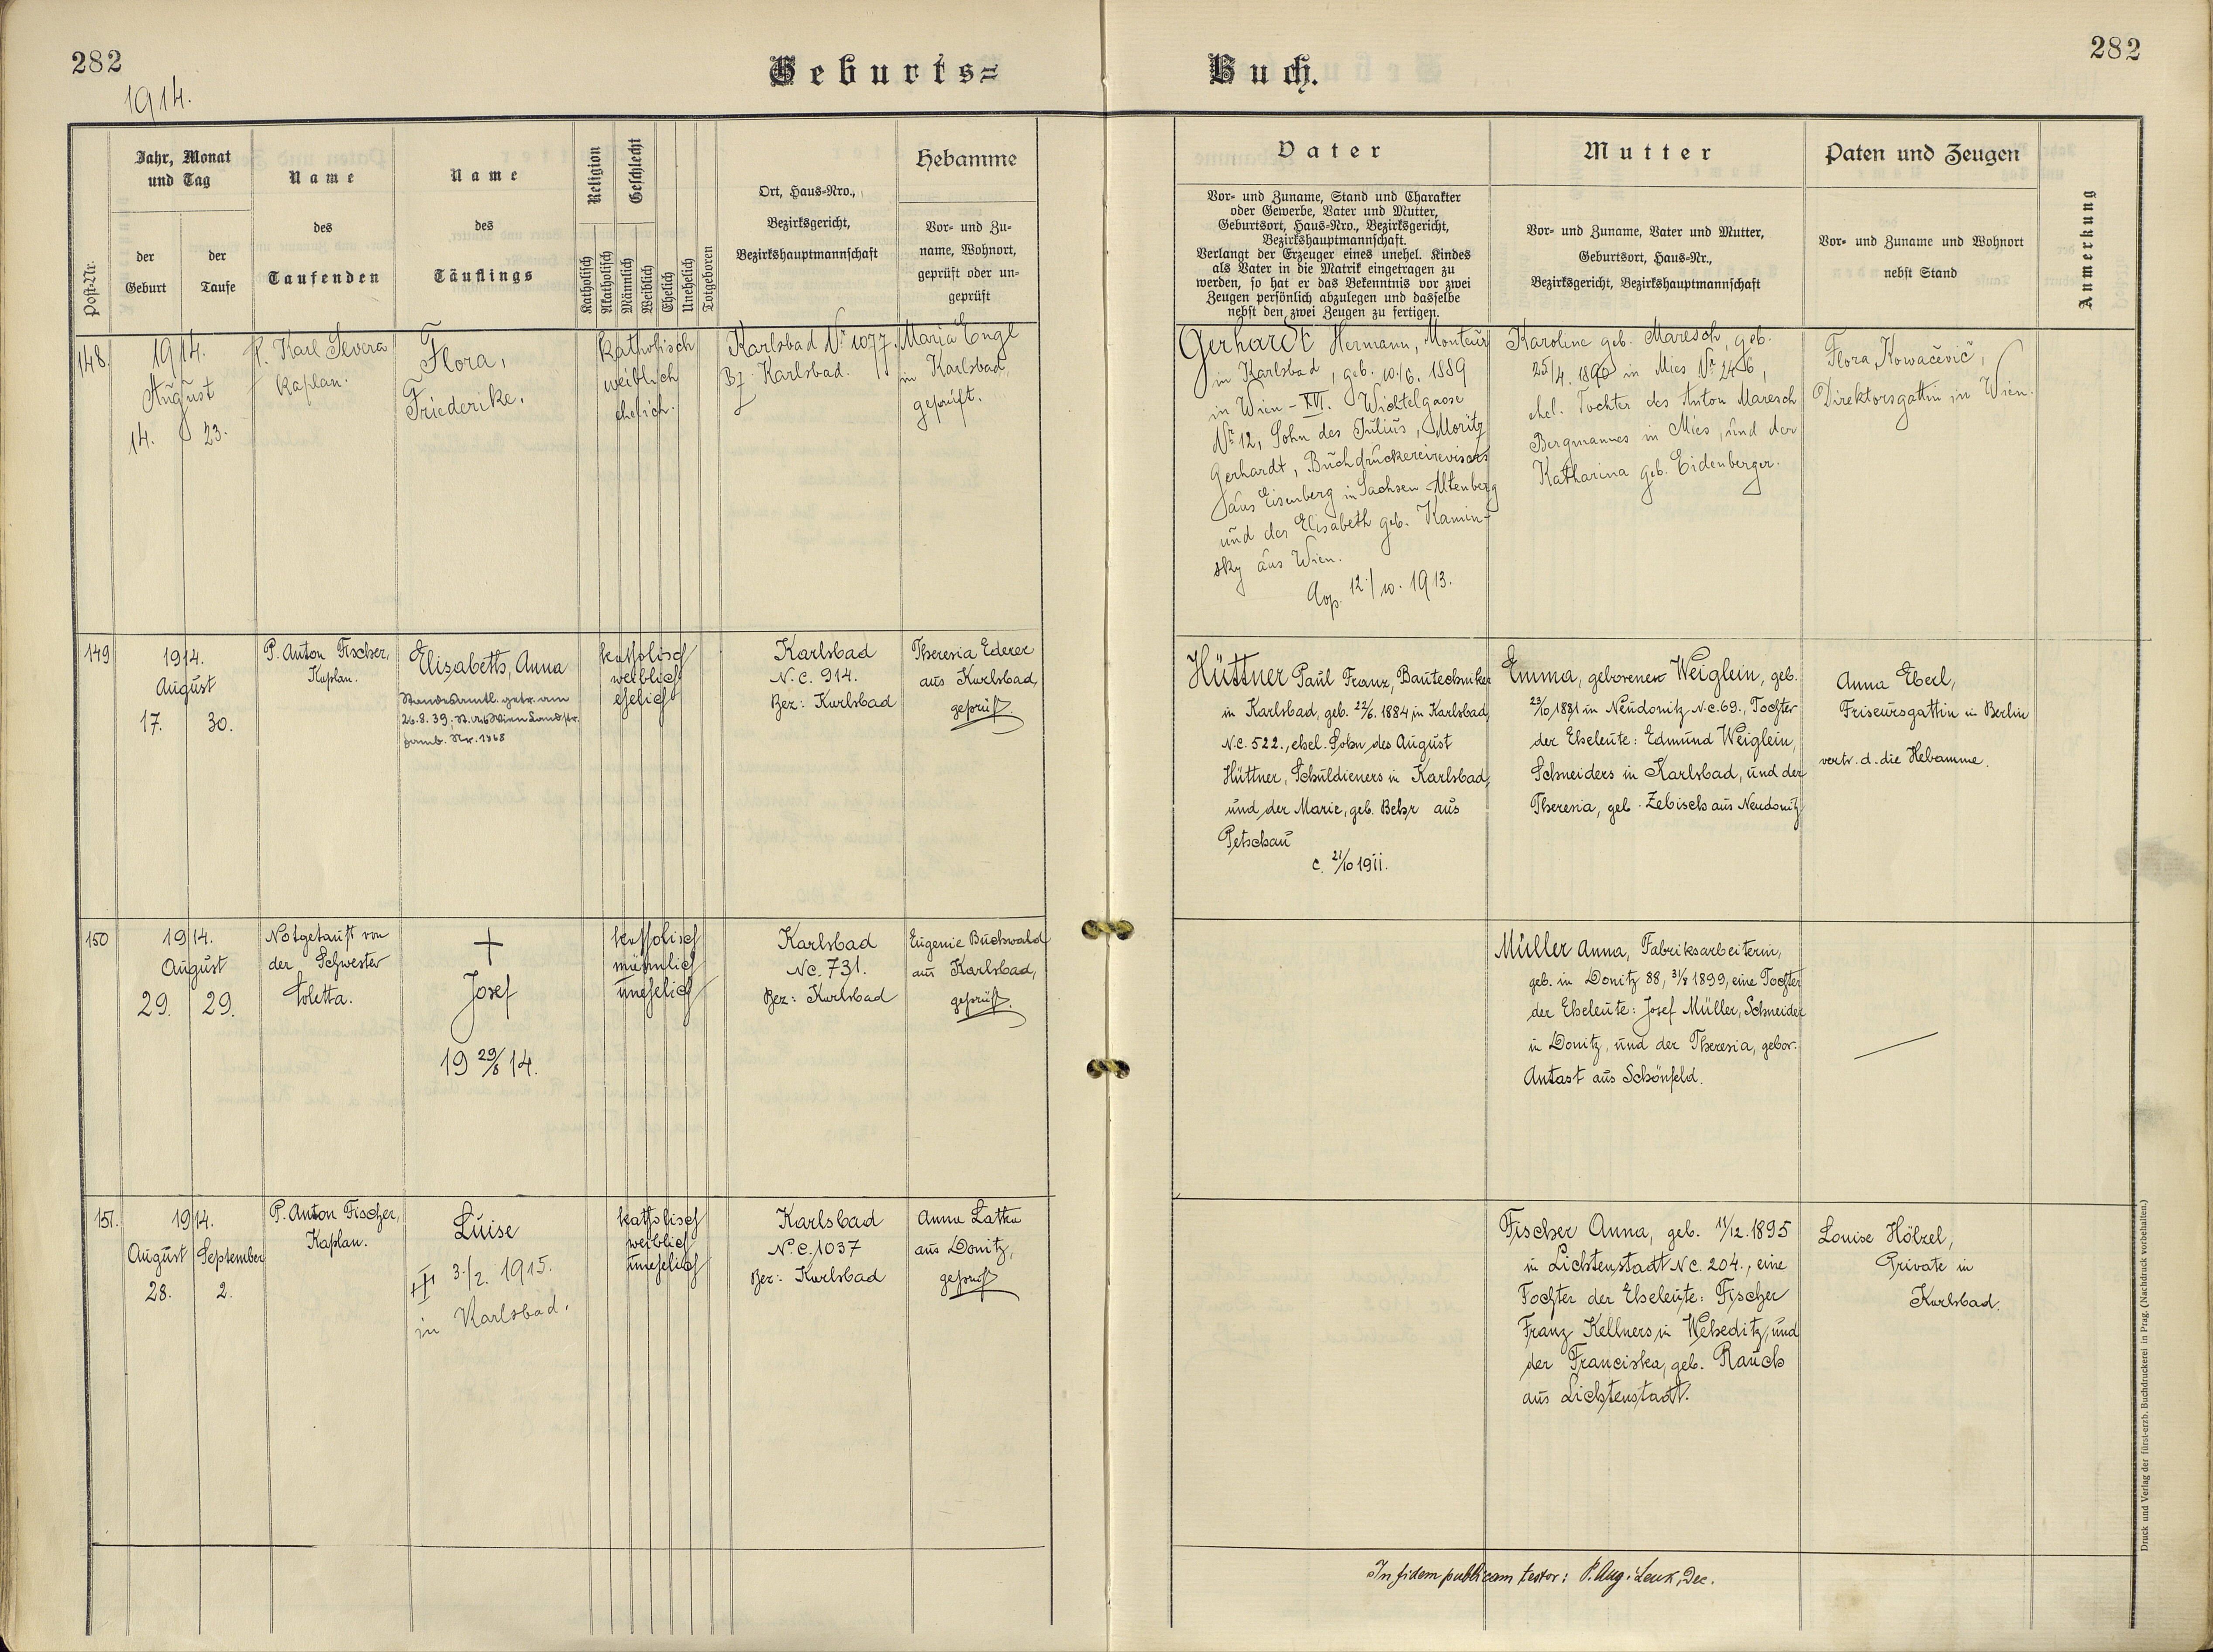 282
Geburts=
Buch.
282
1914.
Post-Nr.
Jahr, Monat
und Tag
der
Geburt
der
Taufe
Name
des
Taufenden
Name
des
Täuflings
Religion
Geschlecht
Katholisch
Akatholisch
Männlich
Weiblich
Ehelich
Unehelich
Totgeboren
Ort, Haus-Nro.,
Bezirksgericht,
Bezirkshauptmannschaft
Hebamme
Vor- und Zu-
name, Wohnort,
geprüft oder un-
geprüft
Vater
Vor- und Zuname, Stand und Charakter
oder Gewerbe, Vater und Mutter,
Geburtsort, Haus-Nro., Bezirksgericht,
Bezirkshauptmannschaft.
Verlangt der Erzeuger eines unehel. Kindes
als Vater in die Matrik eingetragen zu
werden, so hat er das Bekenntnis vor zwei
Zeugen persönlich abzulegen und dasselbe
nebst den zwei Zeugen zu fertigen.
Mutter
Vor- und Zuname, Vater und Mutter,
Geburtsort, Haus-Nr.,
Bezirksgericht, Bezirkshauptmannschaft
Paten und Zeugen
Vor- und Zuname und Wohnort
nebst Stand
Anmerkung
148.
1914.
August
14. 23.
P. Karl Severa
Kaplan.
Flora,
Friederike.
katholisch
weiblich
ehelich.
Karlsbad Nr 1077.
Bz. Karlsbad.
Maria Engl
in Karlsbad,
geprüft.
Gerhardt Hermann, Monteur
in Karlsbad, geb. 10./6. 1889
in Wien - XVI. Wichtelgasse
Nr 12, Sohn des Julius, Moritz
Gerhardt, Buchdruckereirevisors
aus Eisenberg in Sachsen-Altenberg
und der Elisabeth geb. Kamin-
sky aus Wien.
Cop. 12./10. 1913.
Karoline geb. Maresch, geb.
25/4. 1890 in Mies Nr 246,
ehel. Tochter des Anton Maresch
Bergmannes in Mies, und der
Katharina geb. Eidenberger.
Flora Kowačevič,
Direktorsgattin in Wien.
149
1914.
August
17. 30.
P. Anton Fischer,
Kaplan.
Elisabeth, Anna
Standesamtl. getr. am
26.8.39. St. A. Wien Landstr.
Famb. Nr. 1868
katholisch
weiblich
ehelich
Karlsbad
N. C. 914.
Bez: Karlsbad
Theresia Ederer
aus Karlsbad,
geprüft.
Hüttner Paul Franz, Bautechniker
in Karlsbad, geb. 22/6. 1884 in Karlsbad,
N.C. 522., ehel. Sohn des August
Hüttner, Schuldieners in Karlsbad,
und der Marie, geb. Behr aus
Petschau
c. 21/10 1911.
Emma, geborene Weiglein, geb.
23/10, 1881 in Neudonitz N.C. 69., Tochter
der Eheleute: Edmund Weiglein,
Schneiders in Karlsbad, und der
Theresia, geb. Zebisch aus Neudonitz.
Anna Eberl,
Friseursgattin in Berlin
vertr. d. die Hebamme.
150
1914.
August
29. 29.
Notgetauft von
der Schwester
Coletta.
Josef
19 29/8 14.
katholisch
männlich
unehelich
Karlsbad
NC. 731.
Bez: Karlsbad
Eugenie Buchwald
aus Karlsbad,
geprüft.
Müller Anna, Fabriksarbeiterin,
geb. in Donitz 88, 31/8 1899, eine Tochter
der Eheleute: Josef Müller, Schneider
in Donitz, und der Theresia, gebor.
Antast aus Schönfeld.
151.
1914.
August September
28. 2.
P. Anton Fischer,
Kaplan.
Luise
3./2. 1915.
in Karlsbad.
katholisch
weiblich
unehelich
Karlsbad
N. C. 1037
Bez: Karlsbad
Anna Latka
aus Donitz,
geprüft
Fischer Anna, geb. 11/12. 1895
in Lichtenstadt NC. 204., eine
Tochter der Eheleute: Fischer
Franz Kellners in Weheditz, und
der Franciska, geb. Rauch
aus Lichtenstadt.
Louise Hölzel,
Private in
Karlsbad.
In fidem publicam testor: P. Aug. Lenk, Dec.
Druck und Verlag der fürst-erzb. Buchdruckerei in Prag. (Nachdruck vorbehalten.)